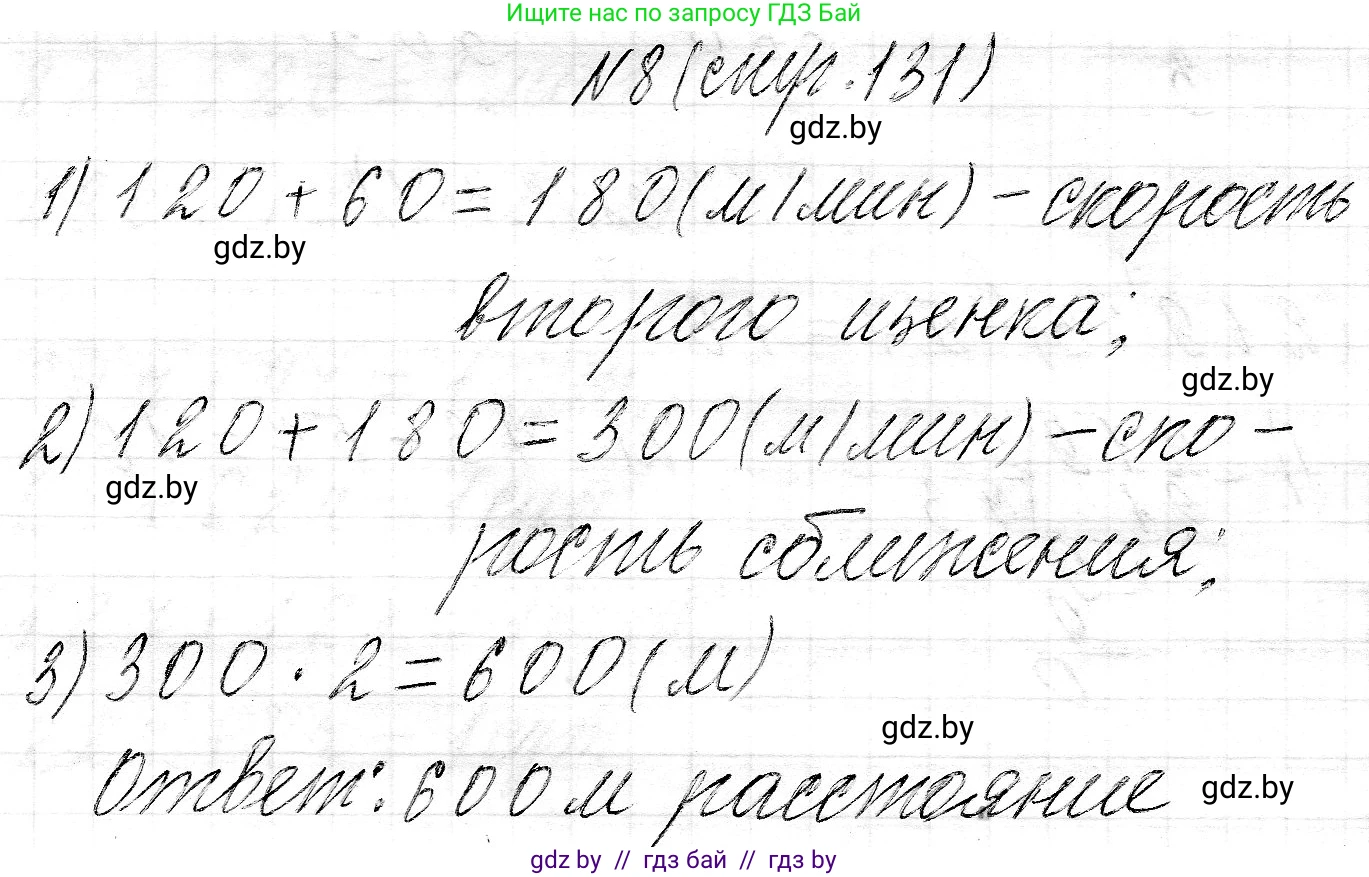 Ищите нас по запросу ГДЗ Бай
N8 (стр. 131)
gdz.by
1) 120 + 60 = 180 (м/мин) - скорость
gdz.by
второго щенка;
gdz.by
2) 120 + 180 = 300 (м/мин) - ско-
gdz.by
рость сближения;
3) 300 · 2 = 600 (м)
gdz.by
Ответ: 600 м расстояние
gdz.by
gdz by // гдз бай // гдз by